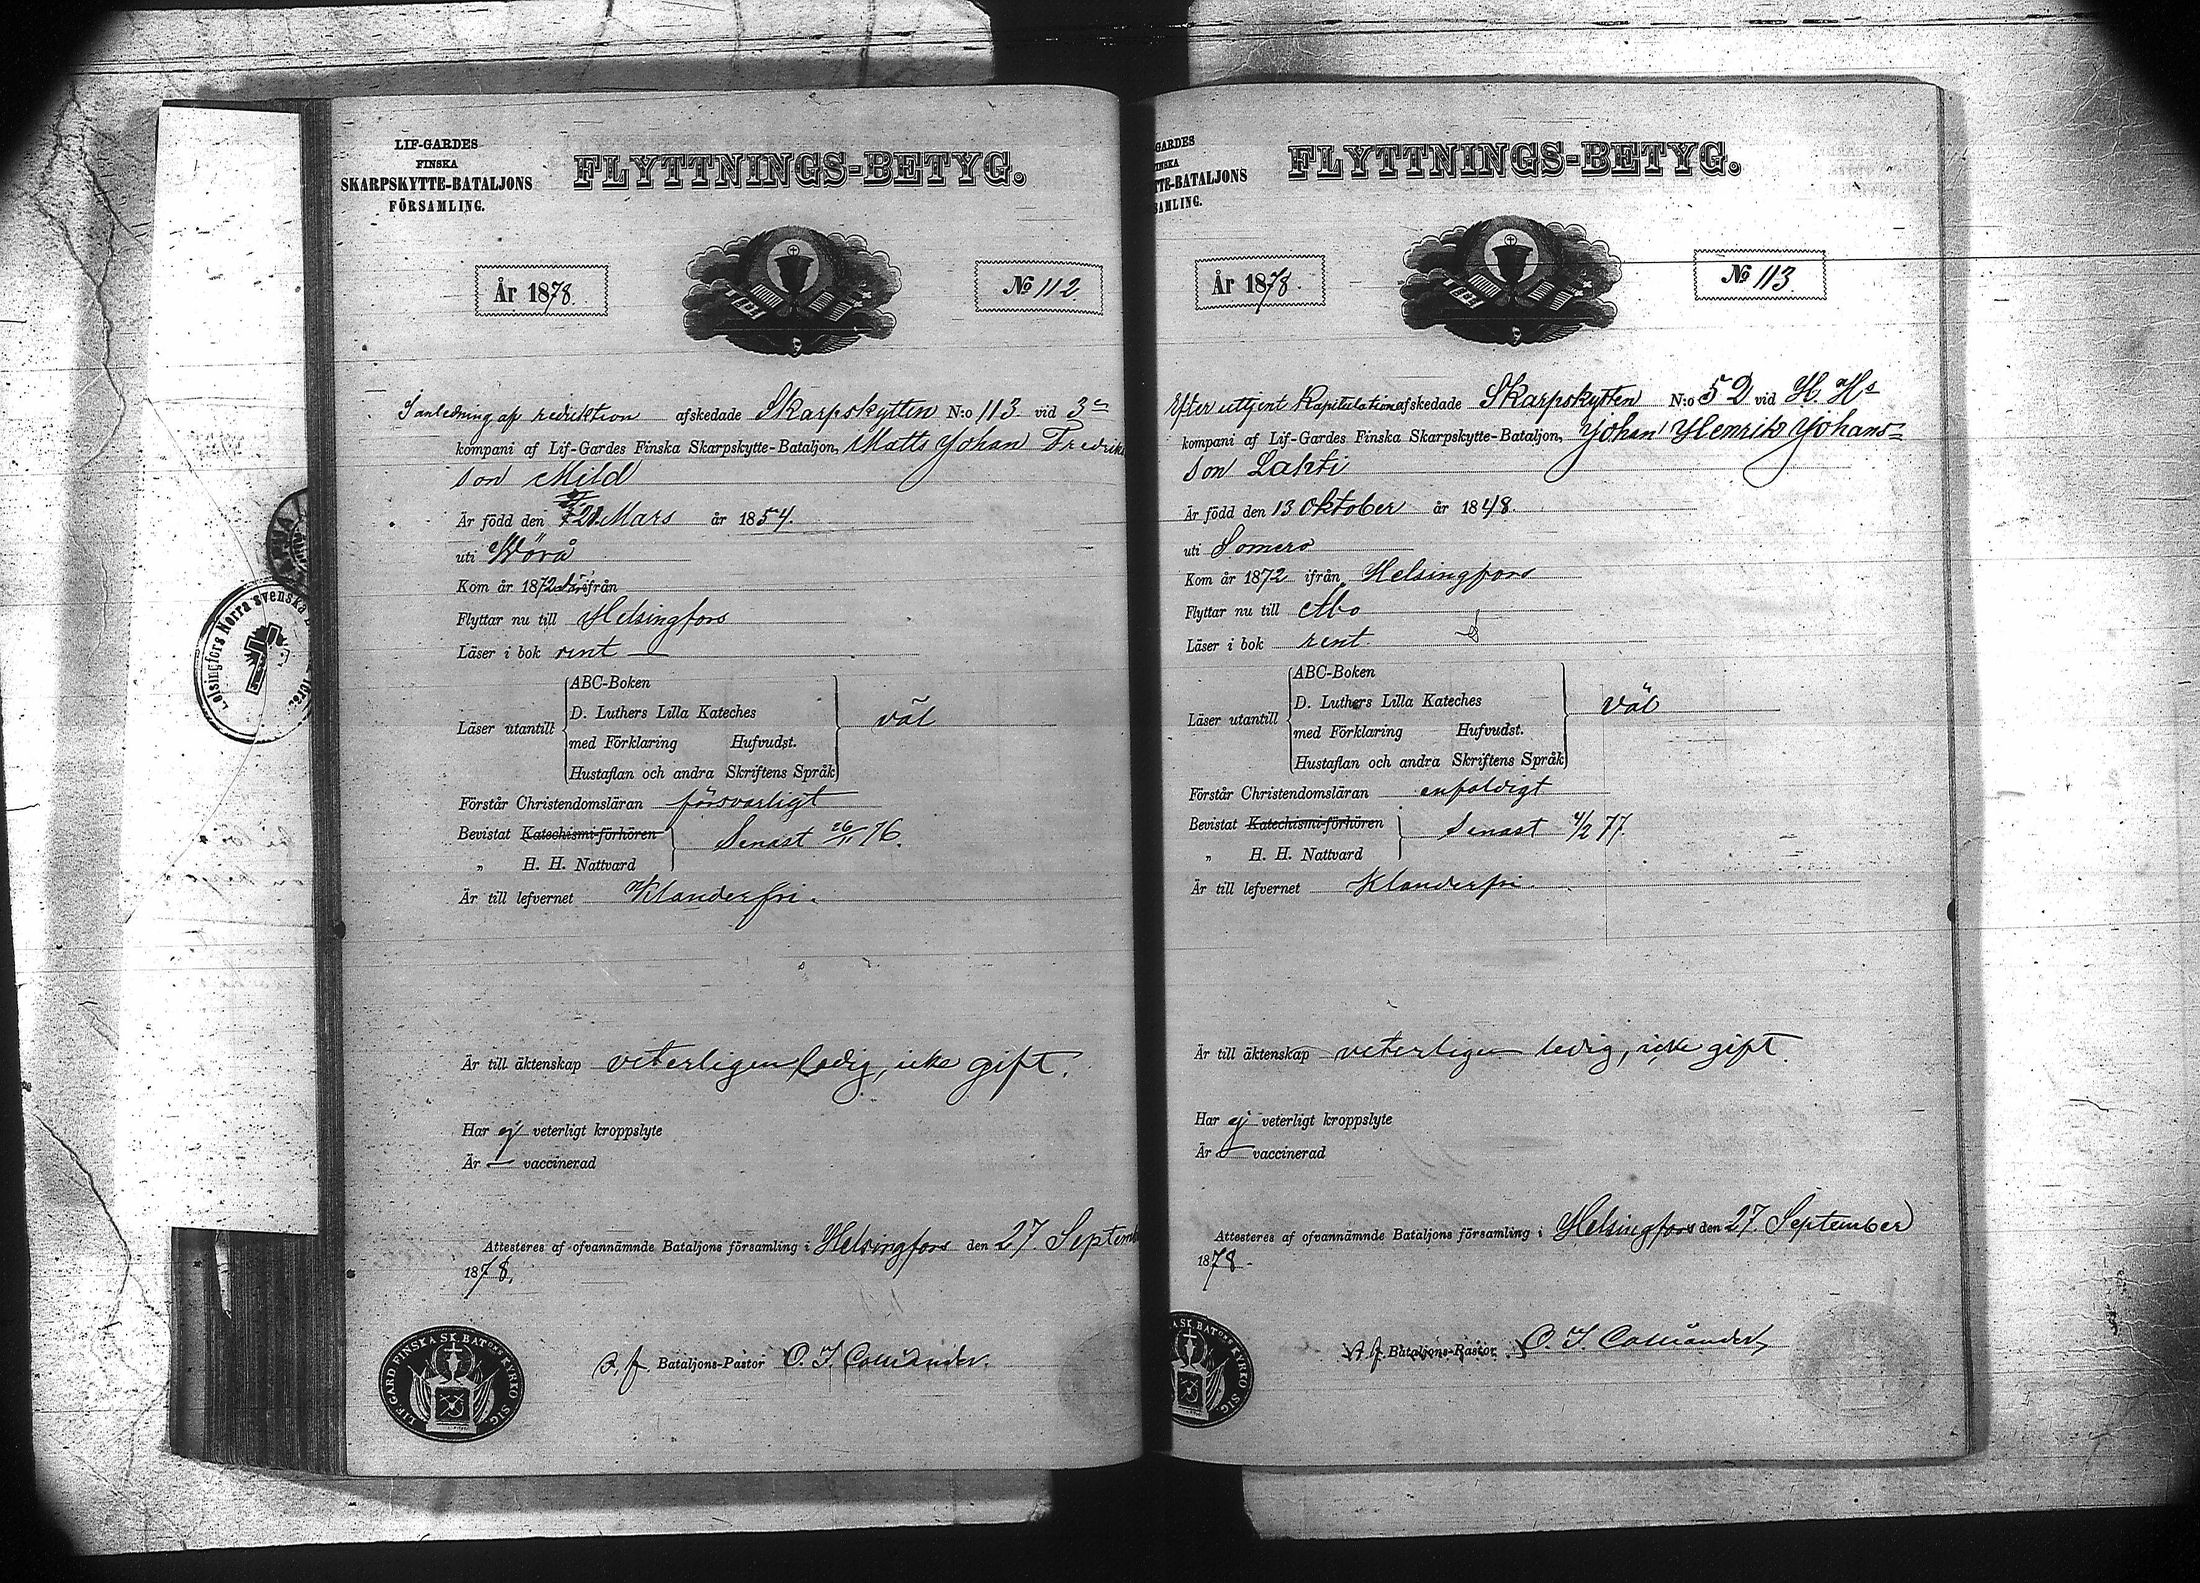 LIF-GARDES
FINSKA
SKARPSKYTTE-BATALJONS
FÖRSAMLING.
FLYTTNINGS-BETYG.
År 1878.
No 112
I anledning af reduktion afskedade Skarpskytten N:o 113 vid 3e
kompani af Lif-Gardes Finska Skarpskytte-Bataljon, Matts Johan Fredriks
son Mild
Är född den 21 Mars år 1854.
uti Wörå
Kom år 1872 ifrån
Flyttar nu till Helsingfors
Läser i bok rent
ABC-Boken
D. Luthers Lilla Kateches
Läser utantill väl
med Förklaring Hufvudst.
Hustaflan och andra Skriftens Språk
Förstår Christendomsläran försvarligt
Bevistat Katechismi-förhören Senast 26/11 76.
„ H. H. Nattvard
Är till lefvernet Klanderfri.
Är till äktenskap veterligen ledig, icke gift.
Har ej veterligt kroppslyte
Är — vaccinerad
Attesteres af ofvannämnde Bataljons församling i Helsingfors den 27. Septemb
1878.
v. f. Bataljons-Pastor O. I. Colliander.
LIF. GARD FINSKA SK. BATONS KYRKO SIG.
Helsingfors Norra svenska
GARDES
FINSKA
TTE-BATALJONS
SAMLING.
FLYTTNINGS-BETYG.
År 1878.
No 113.
Efter uttjent Kapitulation afskedade Skarpskytten N:o 52 vid H. Hs
kompani af Lif-Gardes Finska Skarpskytte-Bataljon, Johan Henrik Johans=
son Lahti
Är född den 13 Oktober år 1848.
uti Somero
Kom år 1872 ifrån Helsingfors
Flyttar nu till Åbo
Läser i bok rent
ABC-Boken
D. Luthers Lilla Kateches
Läser utantill väl
med Förklaring Hufvudst.
Hustaflan och andra Skriftens Språk
Förstår Christendomsläran enfaldigt
Bevistat Katechismi-förhören Senast 4/2 77.
„ H. H. Nattvard
Är till lefvernet Klanderfri.
Är till äktenskap veterligen ledig, icke gift.
Har ej veterligt kroppslyte
Är — vaccinerad
Attesteres af ofvannämnde Bataljons församling i Helsingfors den 27. September
1878.
v. f. Bataljons-Pastor O. I. Colliander
A SK. BATONS KYRKO SIG.